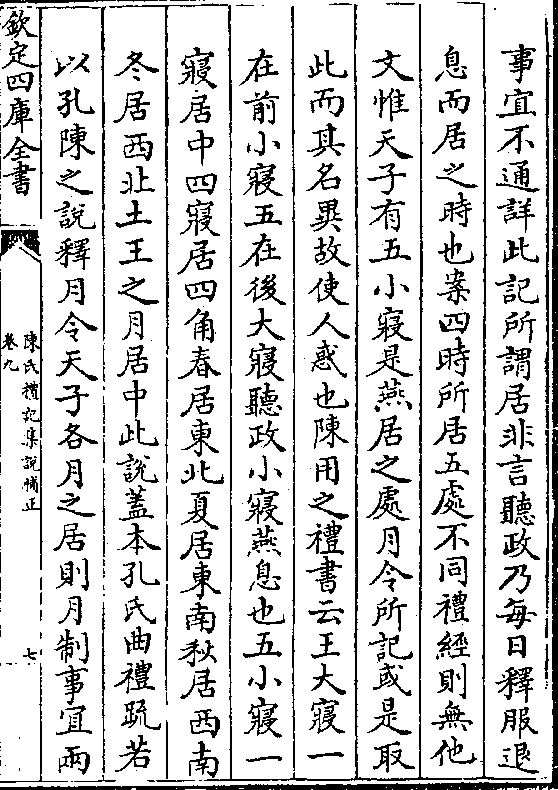 事宜不通詳此記所謂居非言聽政乃每日釋服退
息而居之時也案四時所居五處不同禮經則無他
文惟天子有五小寢是燕居之處月令所記或是取
此而其名異故使人惑也陳用之禮書云王大寢一
在前小寢五在後大寢聽政小寢燕息也五小寢一
寢居中四寢居四角春居東北夏居東南秋居西南
冬居西北土王之月居中此說蓋本孔氏曲禮疏若
以孔陳之說釋月令天子各月之居則月制事宜兩
欽定四庫全書
陳氏禮記集說補正
卷九
七